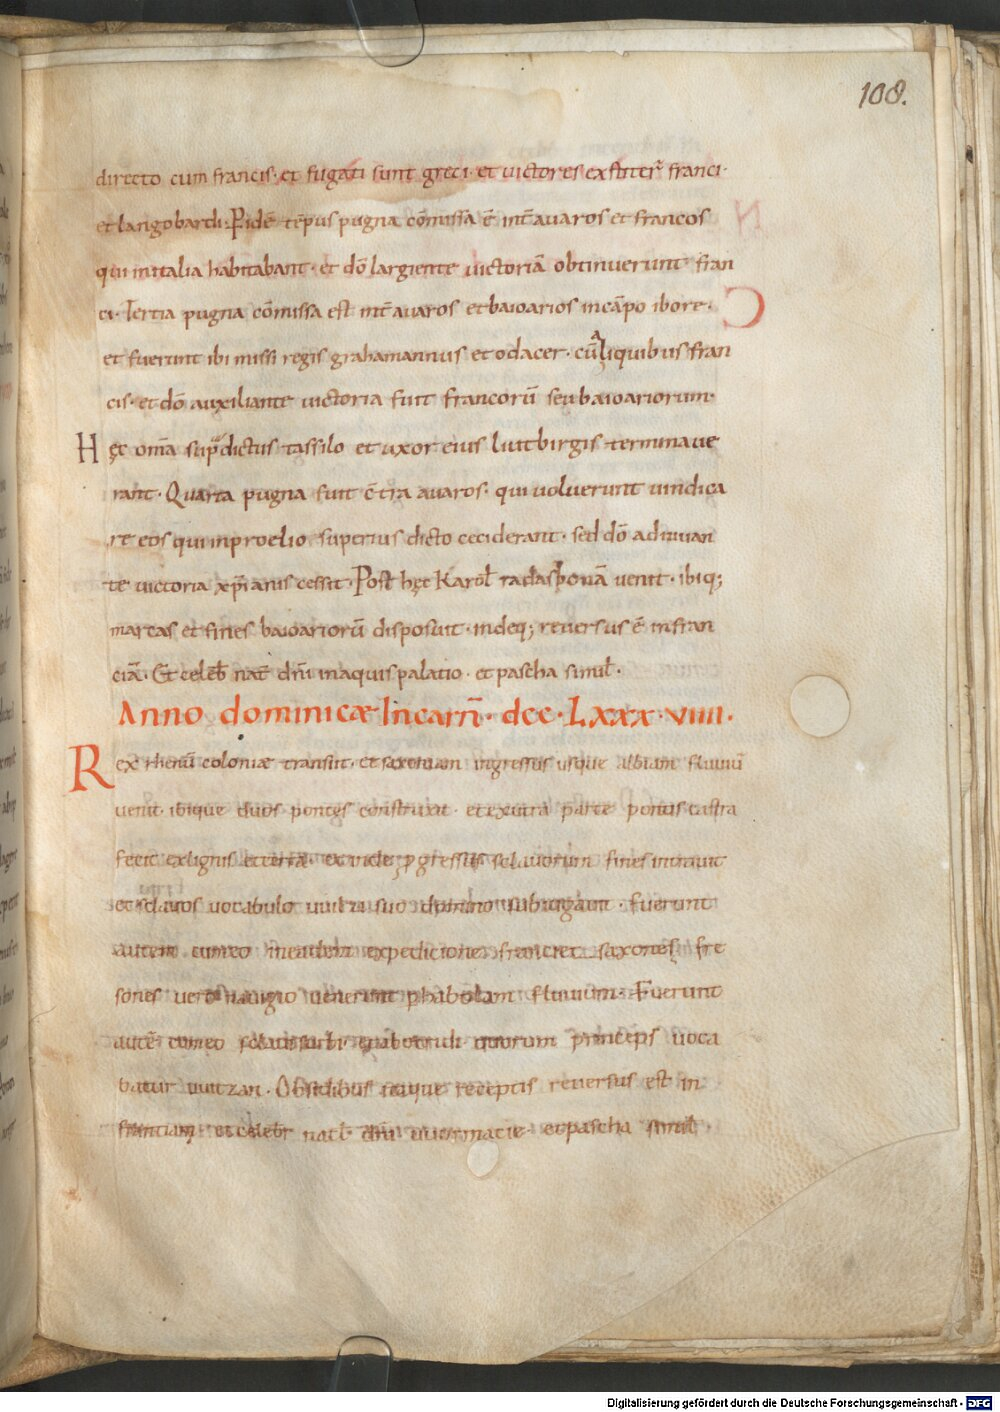 108.
directo cum francis · et fugati sunt greci · et uictores exstiter̄ franci ·
et langobardi · Pidē tēpus pugna cōmissa ē int̄ auaros et francos
qui in italia habitabant · et dō largiente uictoriā obtinuerunt fran
ci · Tertia pugna cōmissa est int̄ auaros et baioarios in cāpo ibore ·
et fuerunt ibi missi regis grahamannus et odacer · cū aliquibus fran
cis · et dō auxiliante uictoria fuit francorū seu baioariorum ·
Hęc om̄a sup̄dictus tassilo et uxor eius liutbirgis terminaue
rant · Quarta pugna fuit c̄tra auaros · qui uoluerunt uindica
re eos qui in proelio superius dicto ceciderant · sed dō adiuuan
te uictoria xp̄ianis cessit · Post hęc Karoł radasponā uenit · ibiq;
marcas et fines baioariorū disposuit · indeq; reuersus ē in fran
ciā · Et celeb̄ nat̄ dn̄i in aquis palatio · et pascha simił ·
Anno dominicæ Incarn̄ · dcc · Lxxx · viiii ·
Rex rhenū coloniae transiit · et saxoniam ingressus usque albiam fluuiū
uenit · ibique duos pontes construxit · et ex utra parte pontis castra
fecit ex lignis et terra · et inde ꝓgressus sclauorum fines intrauit
et sclauos uocabulo uuilti suo dominio subiugauit · fuerunt
autem cum eo in eadem expedicione franci et saxones; fre
sones uero nauigio uenerunt p habolam fluuium · Fuerunt
autē cum eo sclaui surbi · et abotridi quorum princeps uoca
batur uuitzan · Obsidibus itaque receptis reuersus est in
franciam et celebr̄ natł dn̄i uuormacie · et pascha simił ·
Digitalisierung gefördert durch die Deutsche Forschungsgemeinschaft - DFG